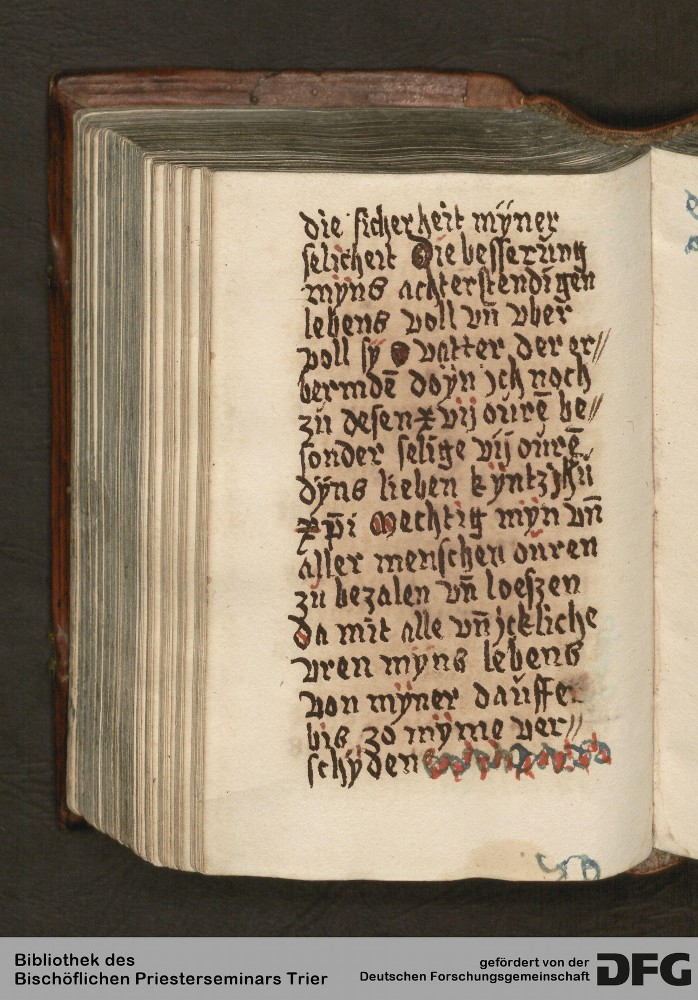 die sicherheit mÿner
selicheit Die besserung
mÿns achterstendigen
lebens voll vn̄ vber
voll sÿ O vatter der er//
bermdē doÿn jch noch
zu desen xvij ourē be//
sonder selige vij ourē
dÿns lieben kÿntz jhū
xp̄i Mechtig mÿn vn̄
aller menschen ouren
zu bezalen vn̄ loeszen
da mit alle vn̄ jckliche
vren mÿns lebens
von mÿner dauffe
bis zo mÿme ver//
schÿden
Bibliothek des
Bischöflichen Priesterseminars Trier
gefördert von der
Deutschen Forschungsgemeinschaft
DFG